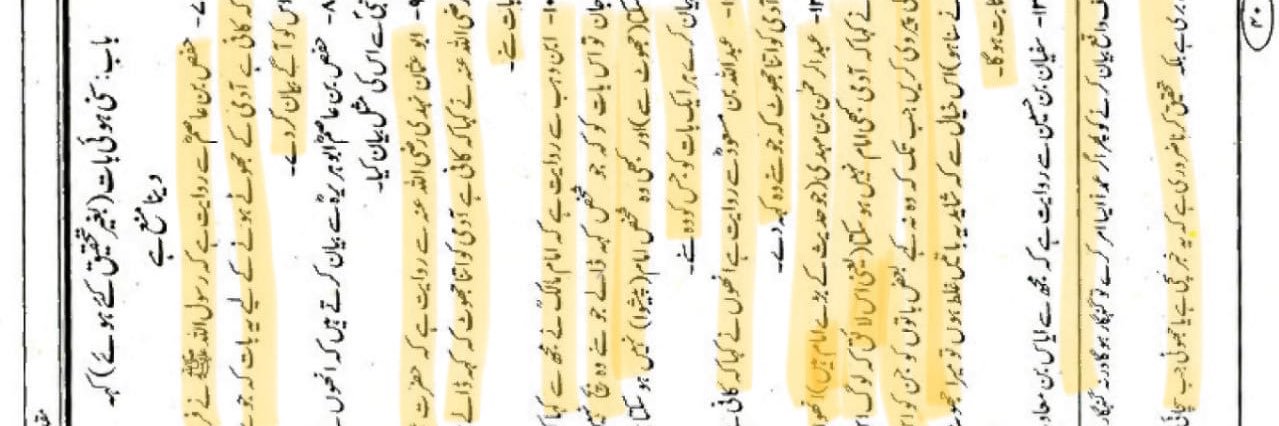 باب: سنی ہوئی بات (بغیر تحقیق کئے ہوئے) کہہ
دینا منع ہے
۷- حفص بن عاصمؓ سے روایت ہے کہ رسول اللہ ﷺ نے
کہ کافی ہے آدمی کے جھوٹے ہونے کے لیے یہ بات کہ جو
اس کو آگے بیان کر دے۔
۸- حفص بن عاصم ابو ہریرہؓ سے بیان کرتے ہیں کہ انھوں
نبیؐ سے اس کی مثل بیان کیا۔
۹- ابو عثمان نہدی رضی اللہ عنہ سے روایت ہے کہ حضرت
رضی اللہ عنہ نے کہا کہ کافی ہے آدمی کو اتنا جھوٹ کہ کہہ ڈالے
بات سنے۔
۱۰- ابن وہب سے روایت ہے کہ امام مالکؒ نے مجھ سے کہا
جان تو اس بات کو کہ جو شخص کہہ ڈالے جو سنے وہ بچ نہیں
سکتا (جھوٹ سے) اور کبھی وہ شخص امام (پیشوا) نہیں ہو سکتا
بیان کرے ہر ایک بات کو جس کو وہ سنے۔
عبداللہ بن مسعودؓ سے روایت ہے انھوں نے کہا کہ کافی ہے
آدمی کو اتنا جھوٹ کہ جو سنے وہ کہہ دے۔
۱۲- عبدالرحمٰن بن مہدی (جو حدیث کے بڑے امام ہیں)
نے کہا کہ آدمی کبھی امام نہیں ہو سکتا (یعنی اس لائق کہ لوگ
کی پیروی کریں) جب تک کہ وہ نہ کہے بعض باتوں کو جن کو
نے سنا ہو) اس خیال سے کہ شاید یہ باتیں غلط ہوں تو میرا جھوٹ
ثابت ہوگا۔
۱۳- سفیان بن حسین سے روایت ہے کہ مجھ سے ایاس بن
واقع بیان کرنے کو پھر اگر عمداً ایسا امر کرے تو گنہگار ہوگا ورنہ گنہگار
تحقیق کرنا ضروری ہے کہ یہ خبر سچی ہے یا جھوٹی جب